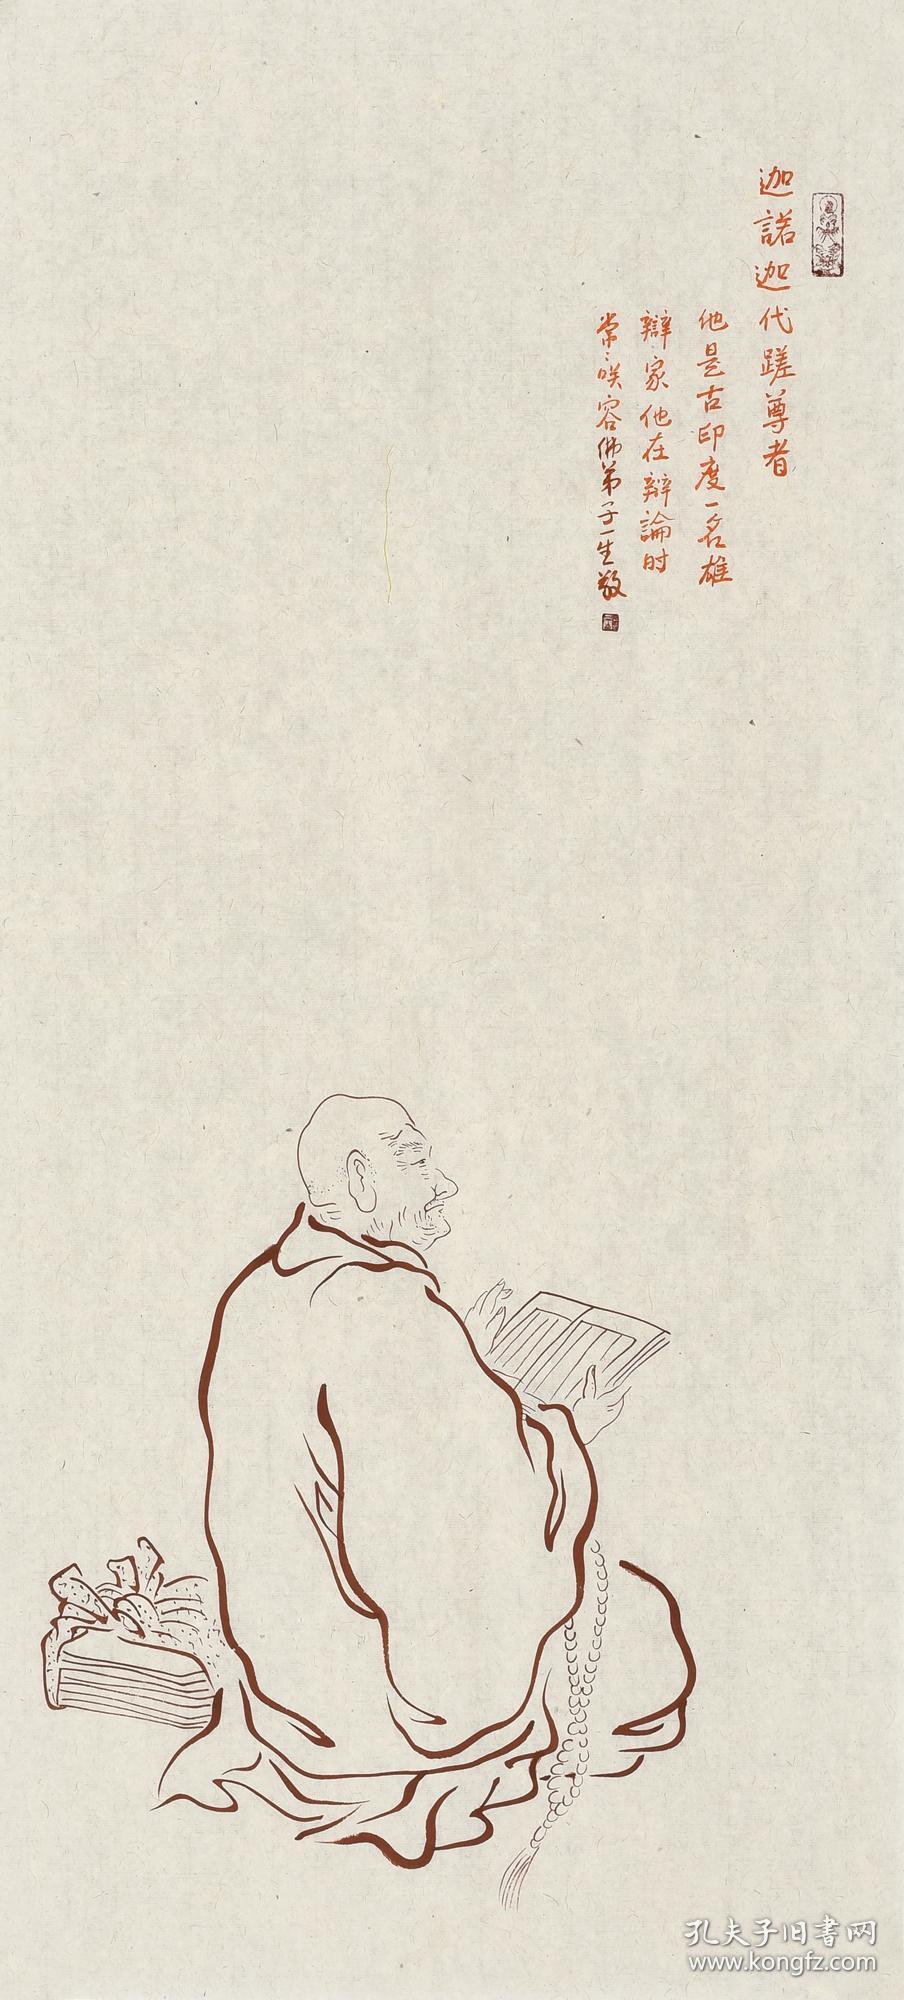 迦諾迦代蹉尊者
他是古印度一名雄
辯家他在辯論时
常〻咲容佛弟子一生敬
孔夫子旧书网
www.kongfz.com